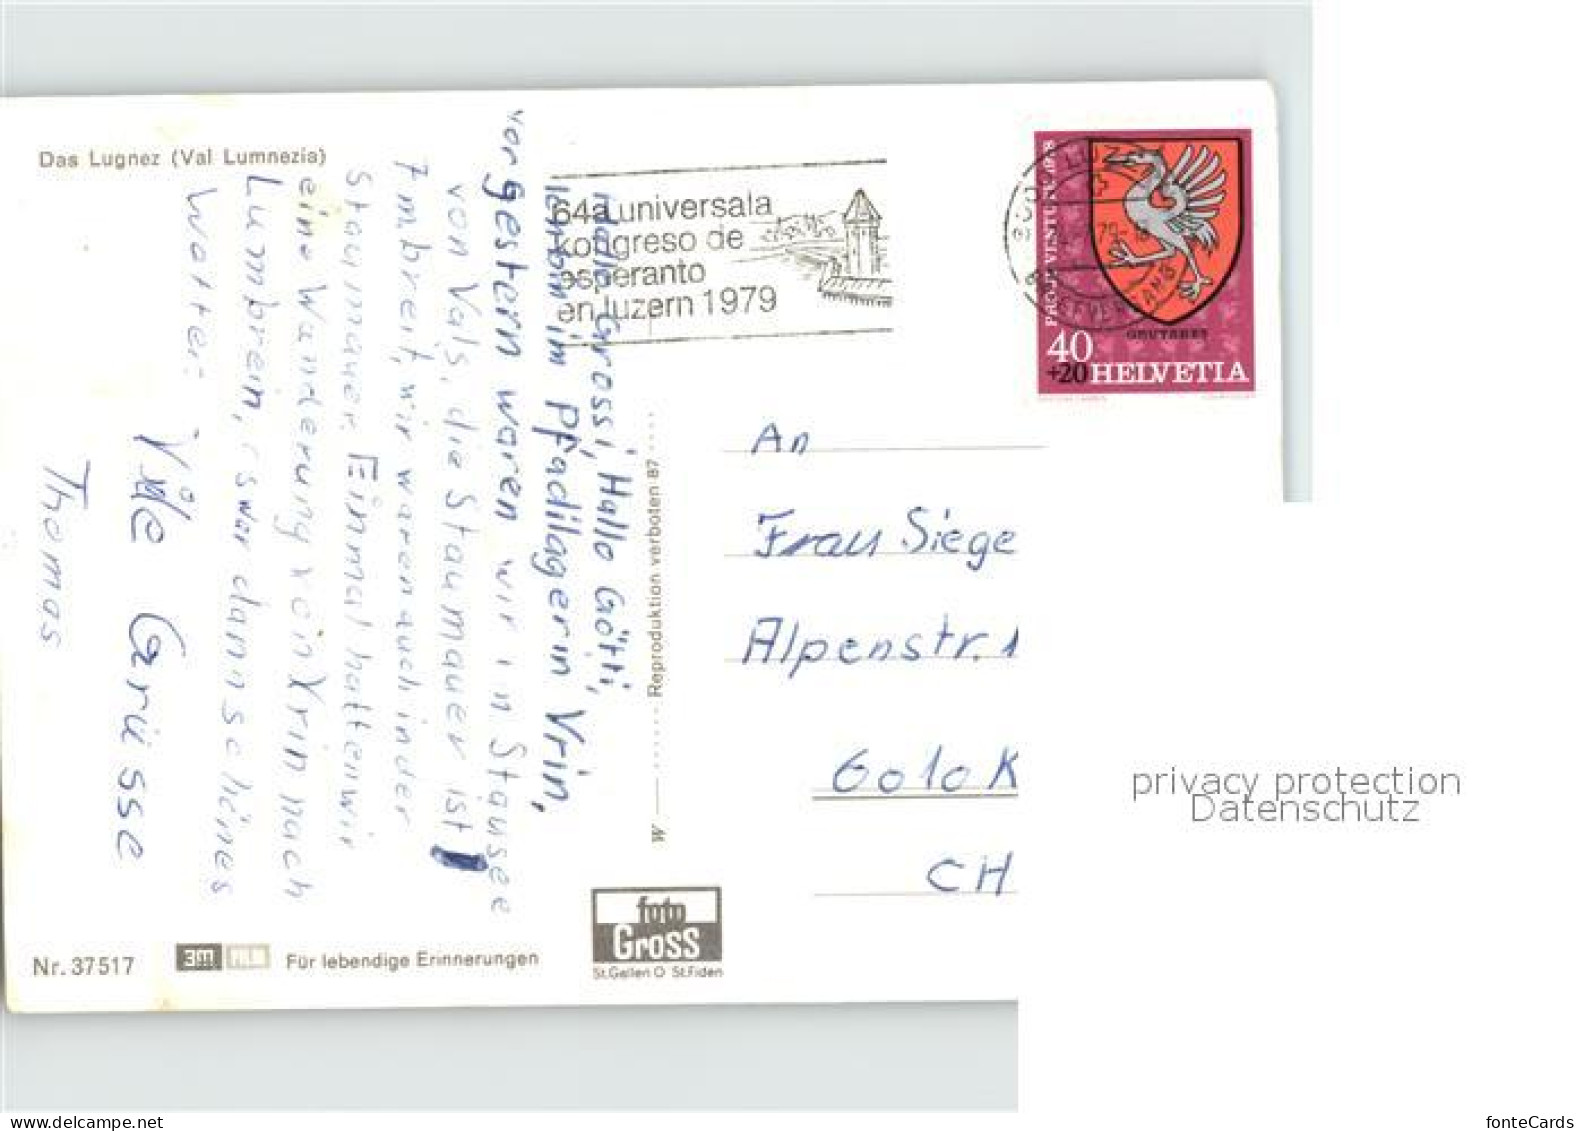 Das Lugnez (Val Lumnezia)
64a universala
kongreso de
esperanto
en luzern 1979
PRO JUVENTUTE 1978
GRUYERES
40
+20 HELVETIA
Hallo Grossi, Hallo Götti,
ich bin im Pfadilager in Vrin,
vorgestern waren wir in Stausee
von Vals, die Staumauer ist
7m breit, wir waren auch in der
Staumauer. Einmal hatten wir
eine Wanderung von Vrin nach
Lumbrein, s war dann schönes
Wetter.
Viile Grüsse
Thomas
W
Reproduktion verboten 87
An
Frau Siege
Alpenstr. 1
6010 K
CH
privacy protection
Datenschutz
foto
Gross
St.Gallen O St.Fiden
Nr. 37517
3m
Für lebendige Erinnerungen
fonteCards